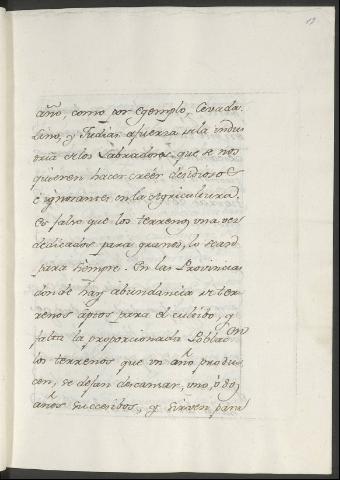 año, como por egemplo, Cevada,
Lino, y Judias afuerza de la indus
tria de los Labradores, que se nos
quieren hacer créer desidiosos
é ignorantes en la Agricultura.
Es falso que los terrenos una vez
dedicados para granos, lo sean
para siempre. En las Provincias
donde hay abundancia de ter-
renos aptos para el cultibo, y
falta la proporcionada Poblacion
los terrenos que un año produ-
cen, se dejan descansar, uno, ó dos
años succesibos, y sirven para